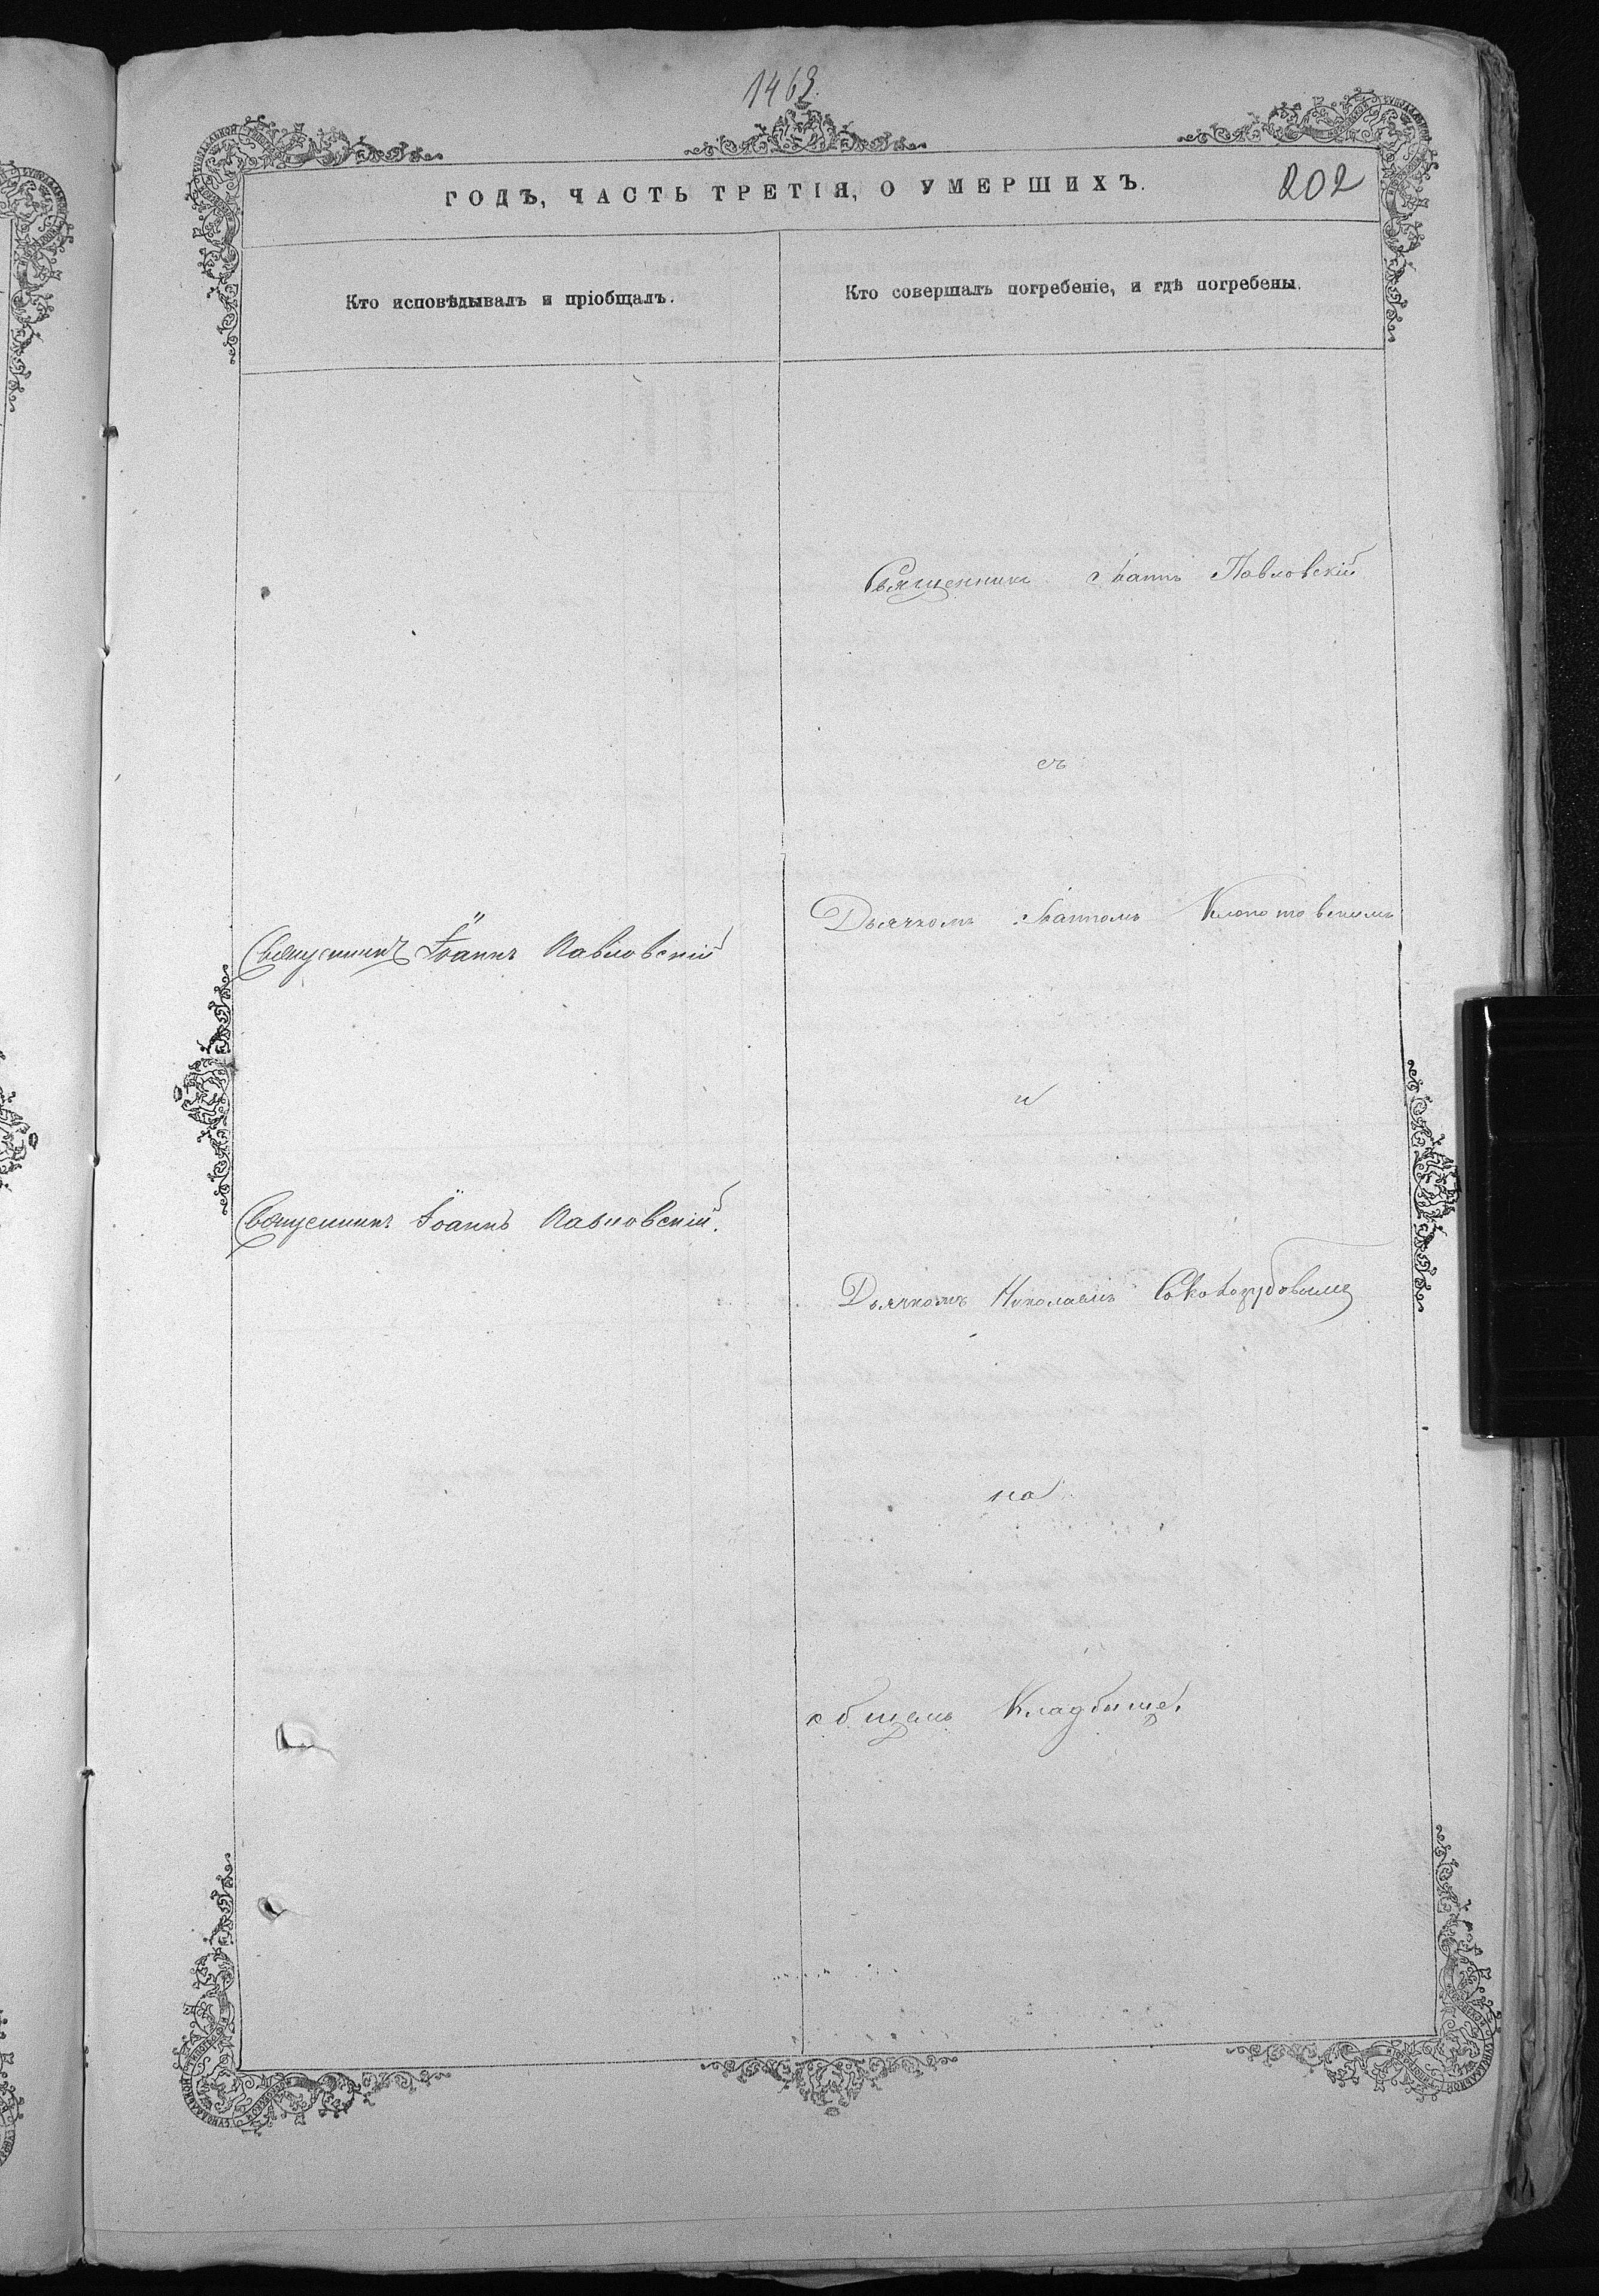 1469.
202
ГОДЪ, ЧАСТЬ ТРЕТІЯ, О УМЕРШИХЪ.
Кто исповѣдывалъ и пріобщалъ.
Кто совершалъ погребеніе, и гдѣ погребены.
Священникъ Іоаннъ Павловскій
съ
Дьячкомъ Іоанномъ Клопотовскимъ
Священникъ Іоаннъ Павловскій
и
Священникъ Іоаннъ Павловскій.
Дьячкомъ Николаемъ
на
общемъ Кладбище.